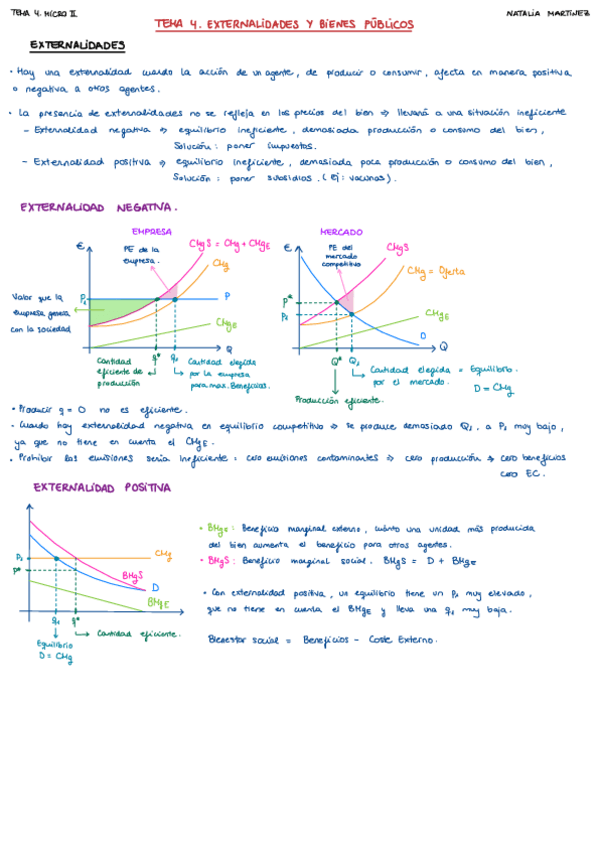 TEMA 4. MICRO II
NATALIA MARTÍNEZ
TEMA 4. EXTERNALIDADES Y BIENES PÚBLICOS
EXTERNALIDADES
• Hay una externalidad cuando la acción de un agente, de producir o consumir, afecta en manera positiva
o negativa a otros agentes.
• La presencia de externalidades no se refleja en los precios del bien => llevará a una situación ineficiente
- Externalidad negativa => equilibrio ineficiente, demasiada producción o consumo del bien,
Solución: poner impuestos.
- Externalidad positiva => equilibrio ineficiente, demasiada poca producción o consumo del bien,
Solución: poner subsidios. (Ej: vacunas).
EXTERNALIDAD NEGATIVA.
EMPRESA
€
PE de la
empresa.
CMgS = CMg + CMgE
CMg
P1
P
Valor que la
empresa genera
con la sociedad
CMgE
Q
q*
q1
Cantidad
eficiente de
producción
Cantidad elegida
por la empresa
para max. Beneficios.
MERCADO
€
PE del
mercado
competitivo
CMgS
CMg = Oferta
P*
P1
CMgE
D
Q
Q*
Q1
Cantidad elegida = Equilibrio.
por el mercado.
D = CMg
Producción eficiente.
• Producir q = 0 no es eficiente.
- Cuando hay externalidad negativa en equilibrio competitivo => se produce demasiado Q1, a P1 muy bajo,
ya que no tiene en cuenta el CMgE.
• Prohibir las emisiones sería ineficiente = cero emisiones contaminantes => cero producción => cero beneficios
cero EC.
EXTERNALIDAD POSITIVA
P1
P*
CMg
BMgS
D
BMgE
q1
q*
Cantidad eficiente.
Equilibrio
D = CMg
• BMgE: Beneficio marginal externo, cuánto una unidad más producida
del bien aumenta el beneficio para otros agentes.
• BMgS: Beneficio marginal social. BMgS = D + BMgE
• Con externalidad positiva, un equilibrio tiene un P1 muy elevado,
que no tiene en cuenta el BMgE y lleva una q1 muy baja.
Bienestar social = Beneficios - Coste Externo.